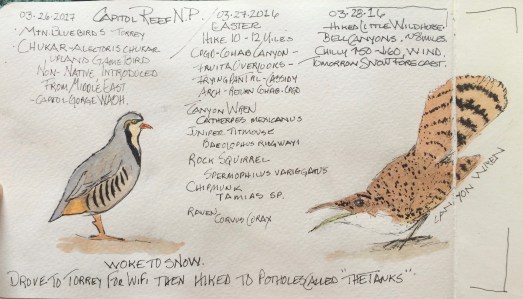 03-26-2017 CAPITOL REEF N.P.
MTN BLUEBIRDS - TORREY
CHUKAR - ALECTORIS CHUKAR
UPLAND GAME BIRD
NON-NATIVE INTRODUCED
FROM MIDDLE EAST
- CAPITOL GORGE WASH.
03/27-2016
EASTER
HIKE 10-12 MILES
CPGD - COHAB CANYON -
FRUITA OVERLOOKS -
FRYING PAN TRL - CASSIDY
ARCH - RETURN COHAB - CPGD
CANYON WREN
CATHERPES MEXICANUS
JUNIPER TITMOUSE
BAEOLOPHUS RIDGWAYI
ROCK SQUIRREL
SPERMOPHILUS VARIEGATUS
CHIPMUNK
TAMIAS SP.
RAVEN CORVUS CORAX
03-28-16
- HIKED LITTLE WILDHORSE
BELL CANYONS. 8 MILES
CHILLY WIND.
TOMORROW SNOW FORECAST.
CANYON WREN
WOKE TO SNOW.
DROVE TO TORREY FOR WIFI THEN HIKED TO POTHOLES CALLED "THE TANKS".